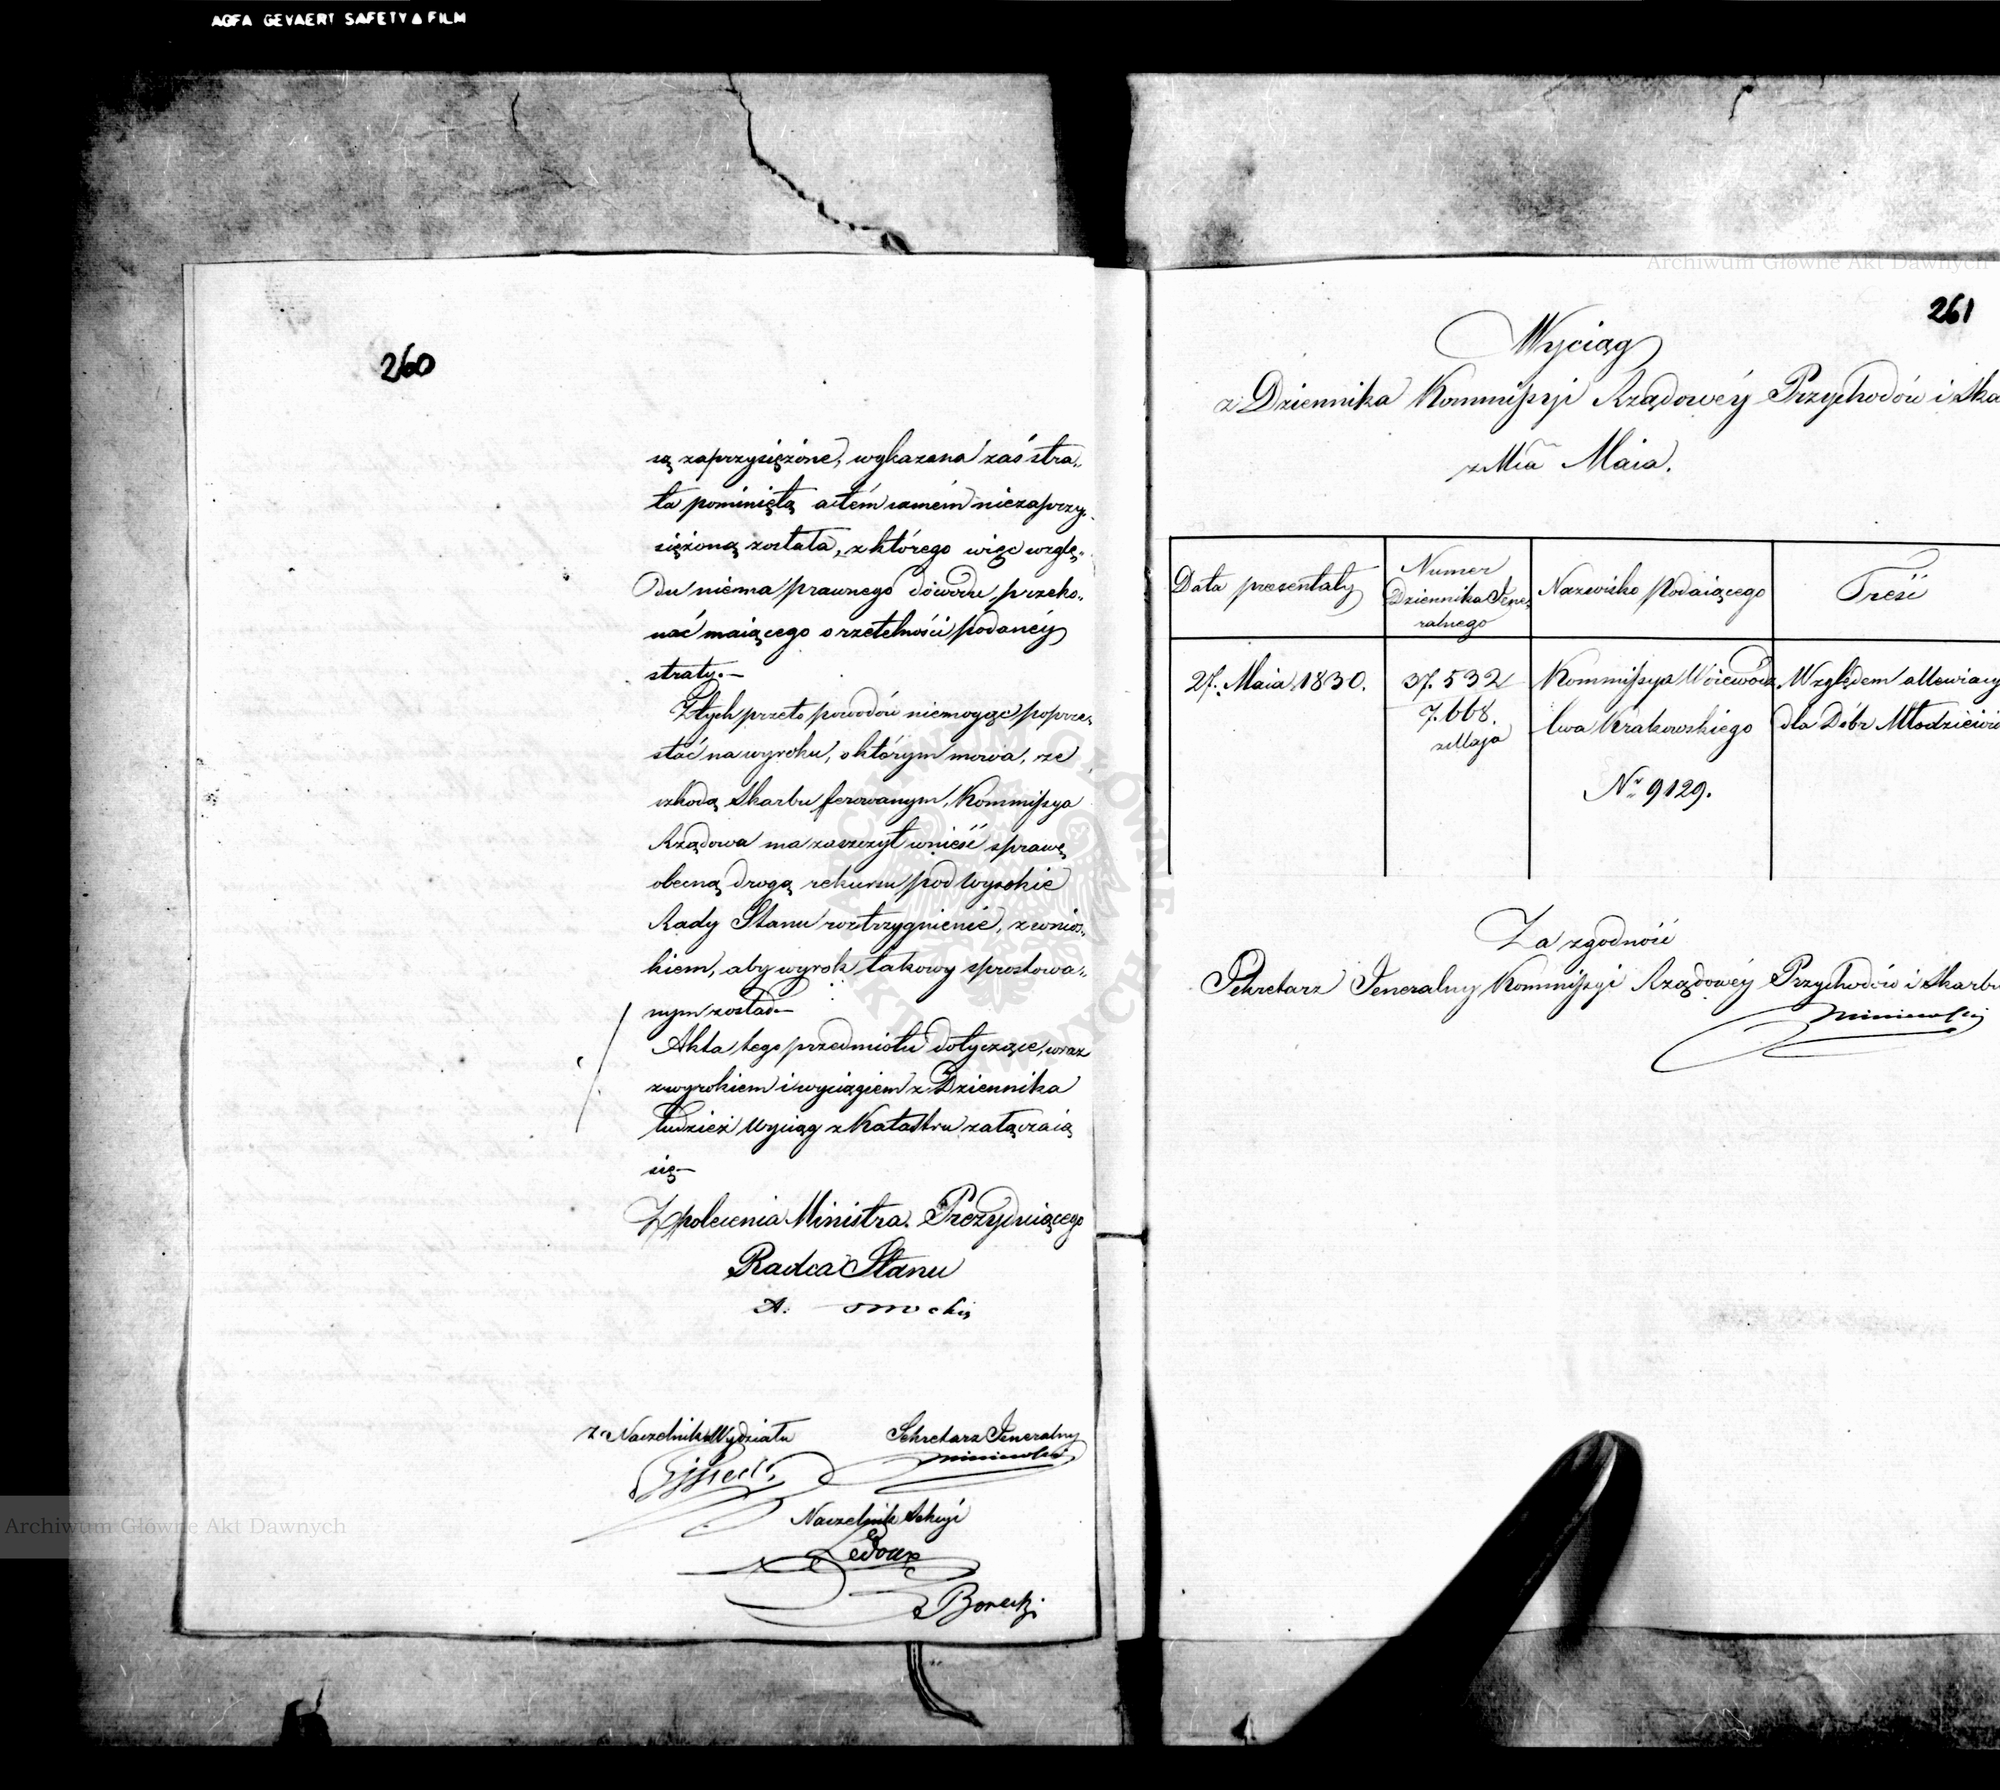 AGFA GEVAERT SAFETY FILM
260
są zaprzysiężone, wykazana zaś stra„
ta pominiętą a tém samém niezaprzy„
siężoną została, z którego więc wzglę„
du niema prawnego dowodu, przeko„
nać maiącego o rzetelności podanéy
straty.—
Ztych przeto powodów niemogąc poprze„
stać na wyroku, o którym mowa, ze
szkodą Skarbu ferowanym, Kommissya
Rządowa ma zaszczyt wnieść sprawę
obecną drogą rekursu pod Wysokie
Rady Stanu roztrzygnienie, z wnios„
kiem, aby wyrok takowy sprostowa„
nym został.—
Akta tego przedmiotu dotyczące, wraz
z wyrokiem i wyciągiem z Dziennika
tudzież Wyciąg z Katastru załączaią
się—
Z polecenia Ministra Prezyduiącego
Radca Stanu
Z. Naczelnik Wydziału
Sekretarz Jeneralny
Naczelnik Sekcyi
Ledoux
Borecki
261
Wyciąg
z Dziennika Kommissyi Rządowéy Przychodów i Ska
z Mca Maia.
Data prezentaty
Numer Dziennika Jene„ ralnego
Nazwisko Podaiącego
Treść
27. Maia 1830.
37.532
7.668.
z Maja
Kommissya Woiewódz
twa Krakowskiego
Nr 9129.
Względem allewiacy
dla Dóbr Młodziei
Za zgodność
Sekretarz Jeneralny Kommissyi Rządowéy Przychodów i Skarbu
Archiwum Główne Akt Dawnych
Archiwum Główne Akt Dawnych
ARCHIWUM GŁÓWNE AKT DAWNYCH